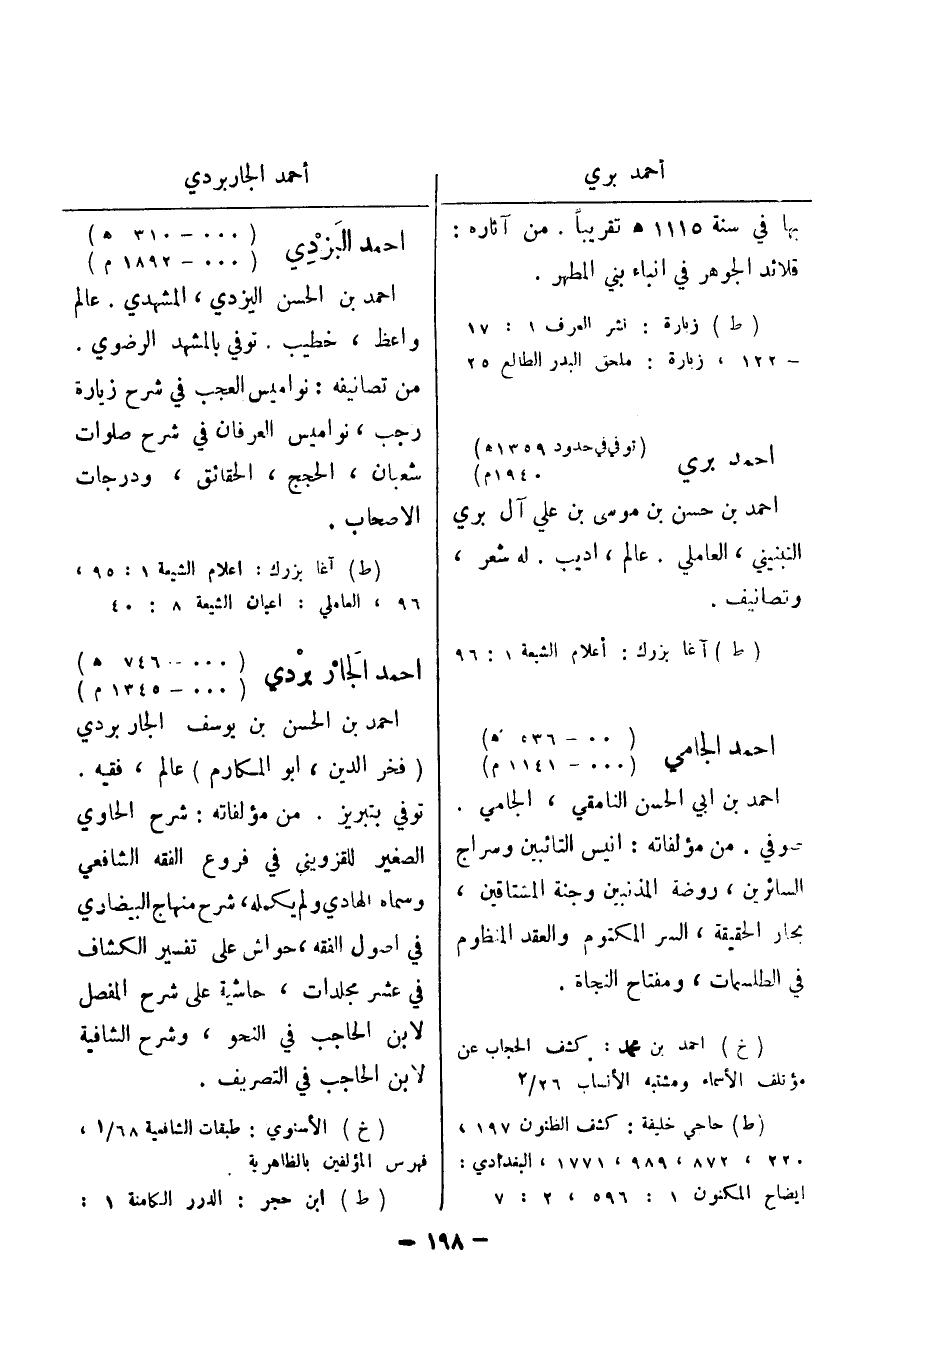 أحمد بري
بها في سنة ١١١٥ ه تقريباً . من آثاره :
قلائد الجوهر في انباء بني المطهر .
( ط ) زبارة : نشر العرف ١ : ١٧
– ١٢٢ ، زبارة : ملحق البدر الطالع ٢٥
احمد بري (توفي في حدود ١٣٥٩ ه)
١٩٤٠م)
احمد بن حسن بن موسى بن علي آل بري
التبنيني ، العاملي . عالم ، اديب . له شعر ،
وتصانيف .
( ط ) آغا بزرك : أعلام الشيعة ١ : ٩٦
احمد الجامي ( ٠٠ – ٥٣٦ ه)
(٠٠٠ – ١١٤١ م)
احمد بن ابي الحسن النامقي ، الجامي .
صوفي . من مؤلفاته : انيس التائبين وسراج
السائرين ، روضة المذنبين وجنة المشتاقين ،
بحار الحقيقة ، السر المكتوم والعقد المنظوم
في الطلسمات ، ومفتاح النجاة .
( خ ) احمد بن محمد : كشف الحجاب عن
مؤتلف الأسماء ومشتبه الأنساب ٢/٢٦
(ط) حاجي خليفة : كشف الظنون ١٩٧ ،
٢٢٠ ، ٨٧٢ ، ٩٨٩ ، ١٧٧١ ، البغدادي :
ايضاح المكنون ١ : ٥٩٦ ، ٢ : ٧
أحمد الجاربردي
احمد اليَزْدِي ( ٠٠٠ – ٣١٠ ه )
( ٠٠٠ – ١٨٩٢ م )
احمد بن الحسن اليزدي ، المشهدي . عالم
واعظ ، خطيب . توفي بالمشهد الرضوي .
من تصانيفه : نواميس العجب في شرح زيارة
رجب ، نواميس العرفان في شرح صلوات
شعبان ، الحجج ، الحقائق ، ودرجات
الاصحاب .
(ط) آغا بزرك : اعلام الشيعة ١ : ٩٥ ،
٩٦ ، العاملي : اعيان الشيعة ٨ : ٤٠
احمد الجَارْ بَرْدي ( ٠٠٠ – ٧٤٦ ه )
( ٠٠٠ – ١٣٤٥ م )
احمد بن الحسن بن يوسف الجاربردي
( فخر الدين ، ابو المكارم ) عالم ، فقيه .
توفي بتبريز . من مؤلفاته : شرح الحاوي
الصغير للقزويني في فروع الفقه الشافعي
وسماه الهادي ولم يكمله ، شرح منهاج البيضاري
في اصول الفقه ، حواش على تفسير الكشاف
في عشر مجلدات ، حاشية على شرح المفصل
لابن الحاجب في النحو ، وشرح الشافية
لابن الحاجب في التصريف .
( خ ) الأسنوي : طبقات الشافعية ١/٦٨ ،
فهرس المؤلفين بالظاهرية .
( ط ) ابن حجر : الدرر الكامنة ١ :
– ١٩٨ –